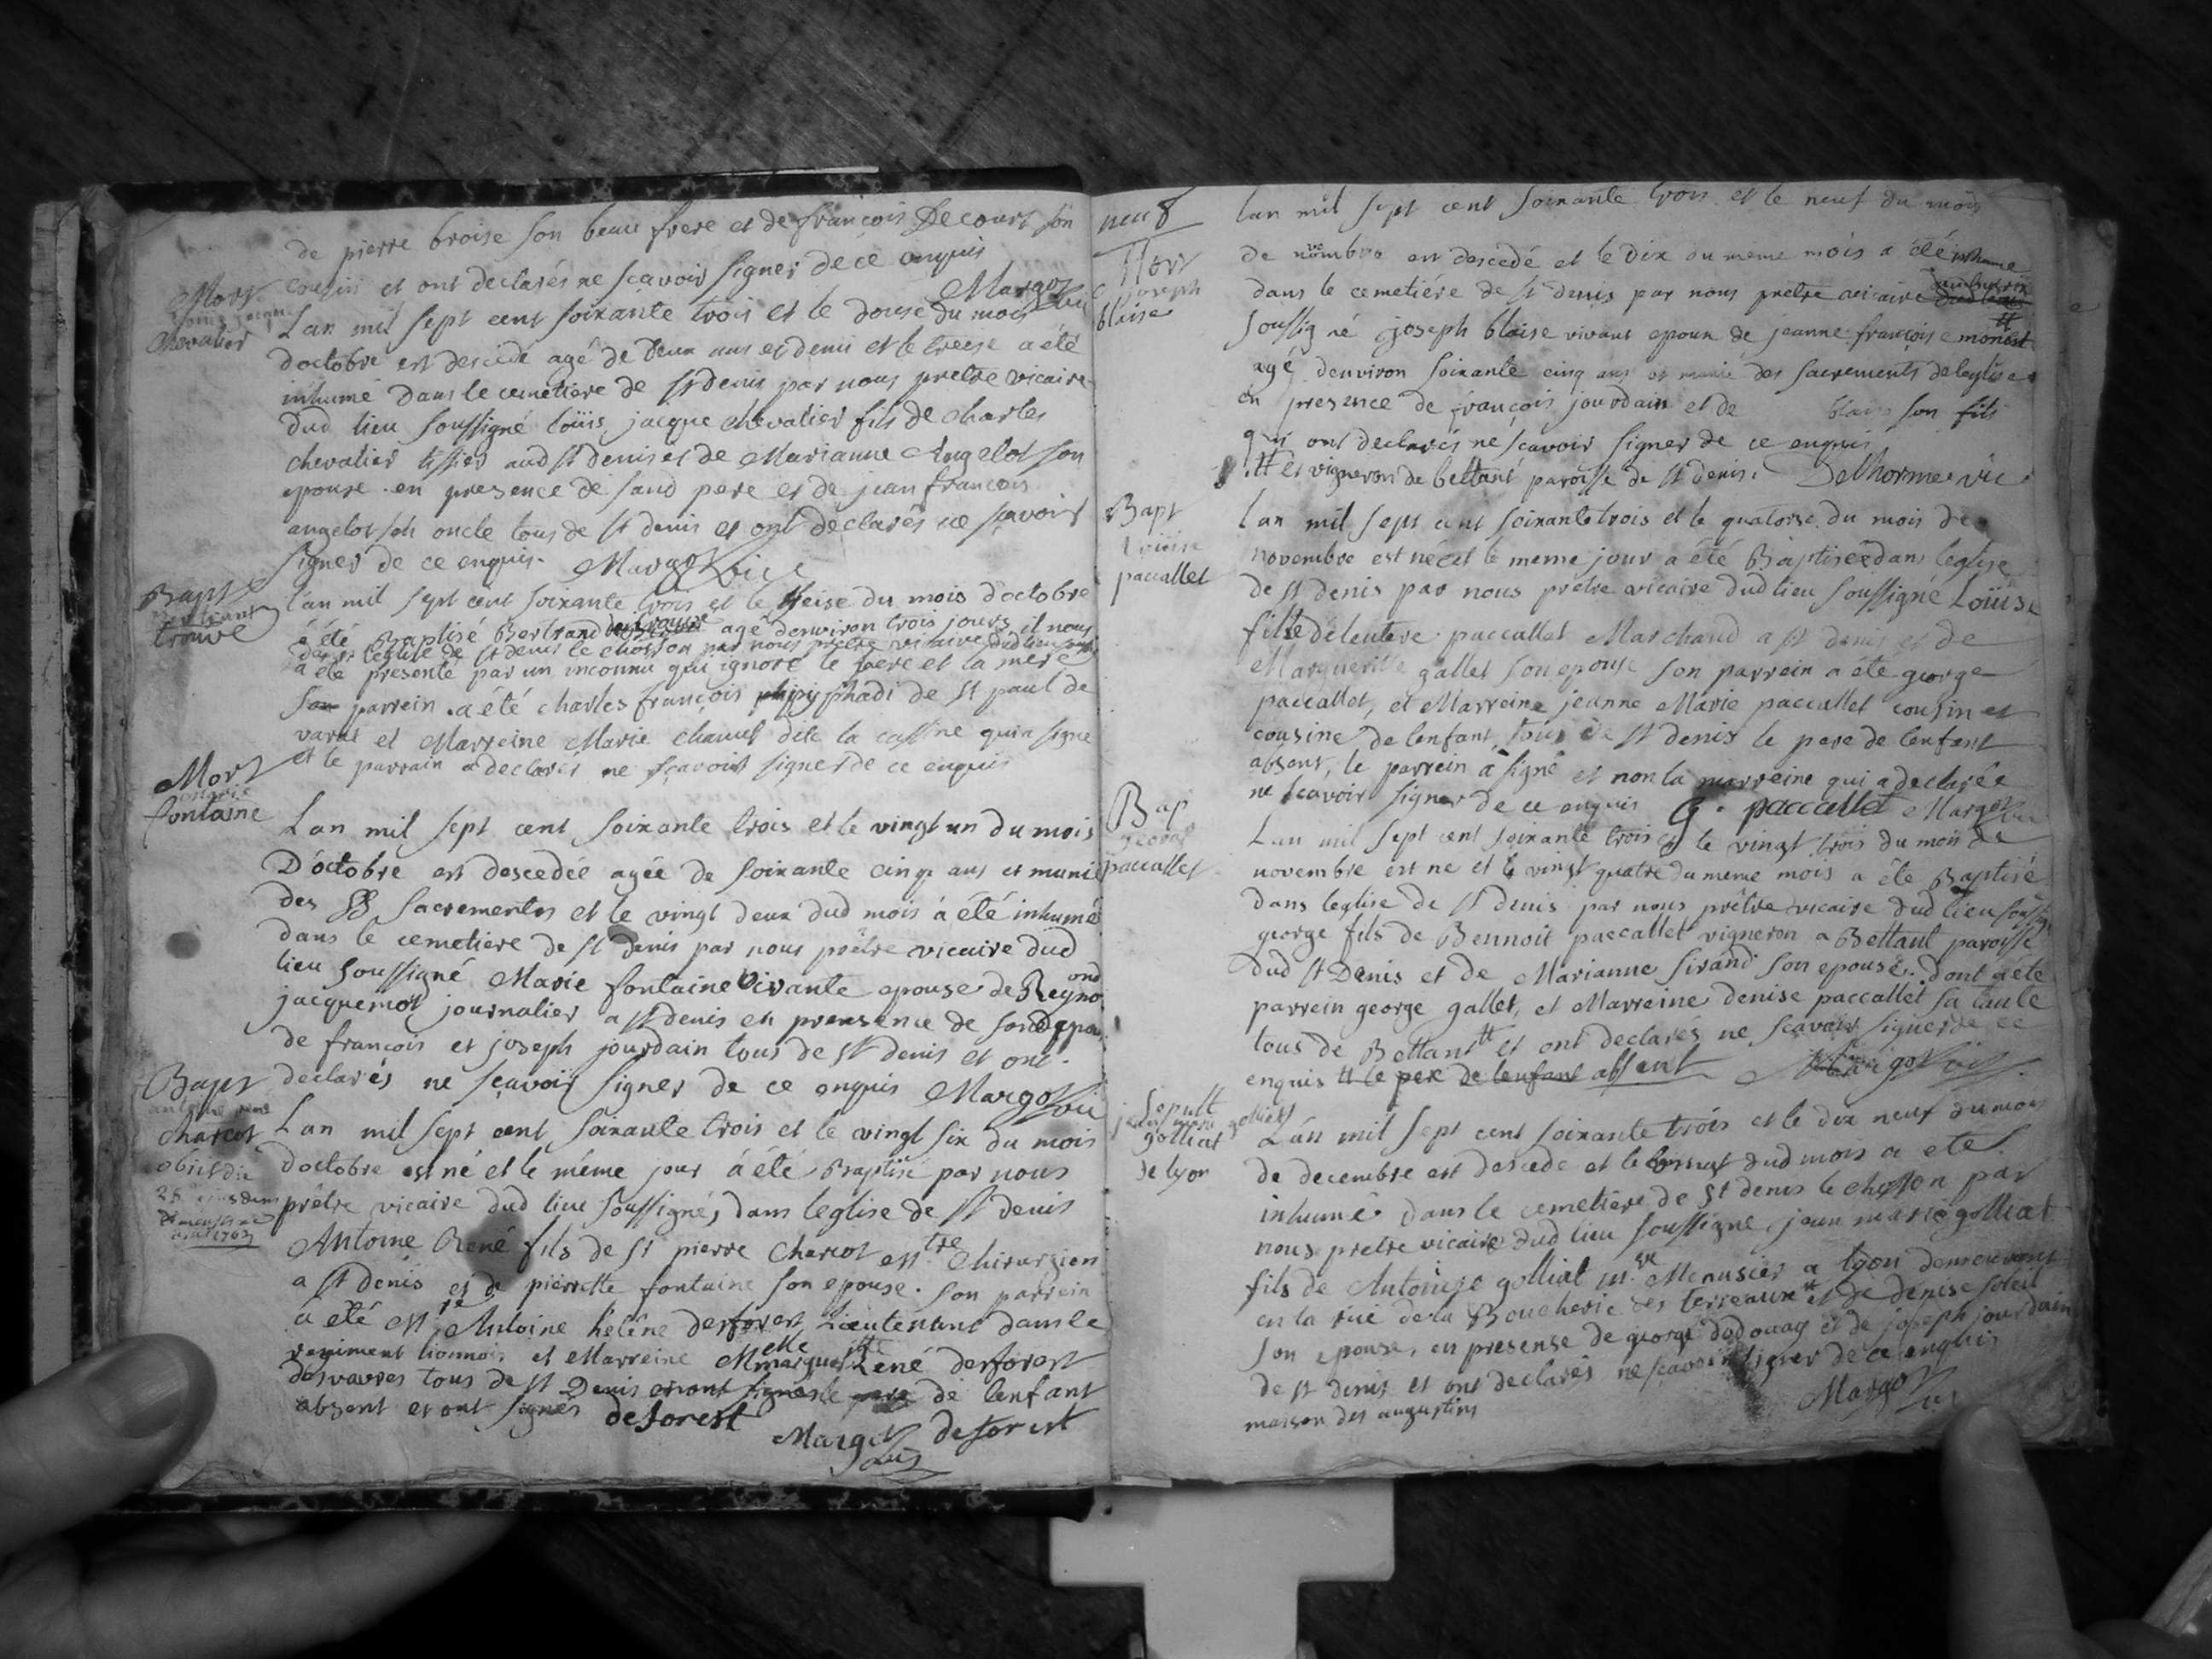 de pierre broise son beau frere et de françois Decourt son
cousin et ont declarés ne sçavoir signer de ce enquis
Margot vic
Mort
Chevalier
Lan mil sept cent soixante trois et le douse du mois
doctobre est descedé agé de deux ans et demi et le treese a été
inhumé dans le cemetiere de st denis par nous pretre vicaire
dud lieu soussigné loüis jacque chevalier fils de charles
chevalier tissier aud st denis et de Marianne Angelot son
epouse en presence de saud pere et de jean françois
angelot son oncle tous de st denis et ont declarés ne sçavoir
signer de ce enquis. Margot vic
Bapt
trouvé
l'an mil sept cent soixante trois et le treise du mois doctobre
a été Baptisé Bertrand agé denviron trois jours il nous
dans leglise de st denis le chosson par nous pretre vicaire dud lieu
a été presenté par un inconnu qui ignore le pere et la mere
son parrein a été charles françois phadi de st paul de
varax et Marreine Marie chanel dite la cassine qui a signé
et le parrain a declarés ne sçavoir signer de ce enquis
Mort
marie
fontaine
Lan mil sept cent soixante trois et le vingt un du mois
Doctobre est descedée agée de soixante cinq ans et munie
des SS sacrements et le vingt deux dud mois à été inhumé
dans le cemetiere de st denis par nous prêtre vicaire dud
lieu soussigné Marie fontaine vivante epouse de Reynond
jacquemot journalier a st denis en presence de sond epou
de françois et joseph jourdain tous de st denis et ont
declarés ne sçavoir signer de ce enquis Margot vic
Bapt
antoine rené
charcot
obiit die
28
1763
Lan mil sept cent soixante trois et le vingt six du mois
doctobre est né et le même jour à été Baptisé par nous
prêtre vicaire dud lieu soussigné, dans leglise de st denis
Antoine René fils de sr pierre charcot mtre chirurgien
a st denis et de pierrette fontaine son epouse. son parrein
a été mre Antoine helêne desforest Lieutenant dans le
regiment lionnois et Marreine Melle margueritte René desforest
desvavres tous de st Denis et ont signés le pere de lenfant
absent et ont signés deforest
Margot vic deforest
neuf
Mort
joseph
blaise
lan mil sept cent soixante trois et le neuf du mois
de novembre est descedé et le dix du meme mois a été inhumé
dans le cemetiére de st denis par nous pretre vicaire
soussigné joseph blaise vivant epoux de jeanne françoise monet
agé denviron soixante cinq ans et munie des sacrements de leglise
en presence de françois jourdain et de blaise son fils
qui ont declarés ne sçavoir signer de ce enquis
# et vigneron de bettant paroisse de st denis. Delhorme vic
Bapt
loüise
paccallet
lan mil sept cent soixante trois et le quatorse du mois de
novembre est née et le meme jour a été Baptisée dans leglise
de st denis par nous prêtre vicaire dud lieu soussigné Loüise
fille deleutere paccallet Marchand a st denis et de
Marguerite gallet son epouse son parrein a été george
paccallet, et Marreine jeanne Marie paccallet cousin et
cousine de lenfant, tous de st denis le pere de lenfant
absent, le parrein a signé et non la marreine qui a declarée
ne scavoir signer de ce enquis G. paccallet Margot vic
Bap
george
paccallet
Lan mil sept cent soixante trois et le vingt trois du mois de
novembre est ne et le vingt quatre du meme mois a été Baptisé
dans leglise de st denis par nous prêtre vicaire dud lieu soussig
george fils de Bennoit paccallet vigneron a Bettant paroisse
dud st Denis et de Marianne sirand son epouse. dont a été
parrein george gallet, et Marreine denise paccallet sa tante
tous de Bettant # et ont declarés ne scavoir signer de ce
enquis # le pere de lenfant absent Margot vic
Sepult
jean marie golliat
golliat
de lyon
Lân mil sept cent soixante trois et le dix neuf du mois
de decembre est descede et le dud mois a ete
inhumé dans le cemetiere de st denis le chosson par
nous pretre vicaire dud lieu soussigne, jean marie golliat
fils de Antoine golliat mre Menusier a lyon demeurant
en la rüe de la Boucherie des terreaux # et de denise soleil
son epouse, en presense de george dudouay et de joseph jourdain
de st denis et ont declarés ne sçavoir signer de ce enquis
maison des augustins Margot vic